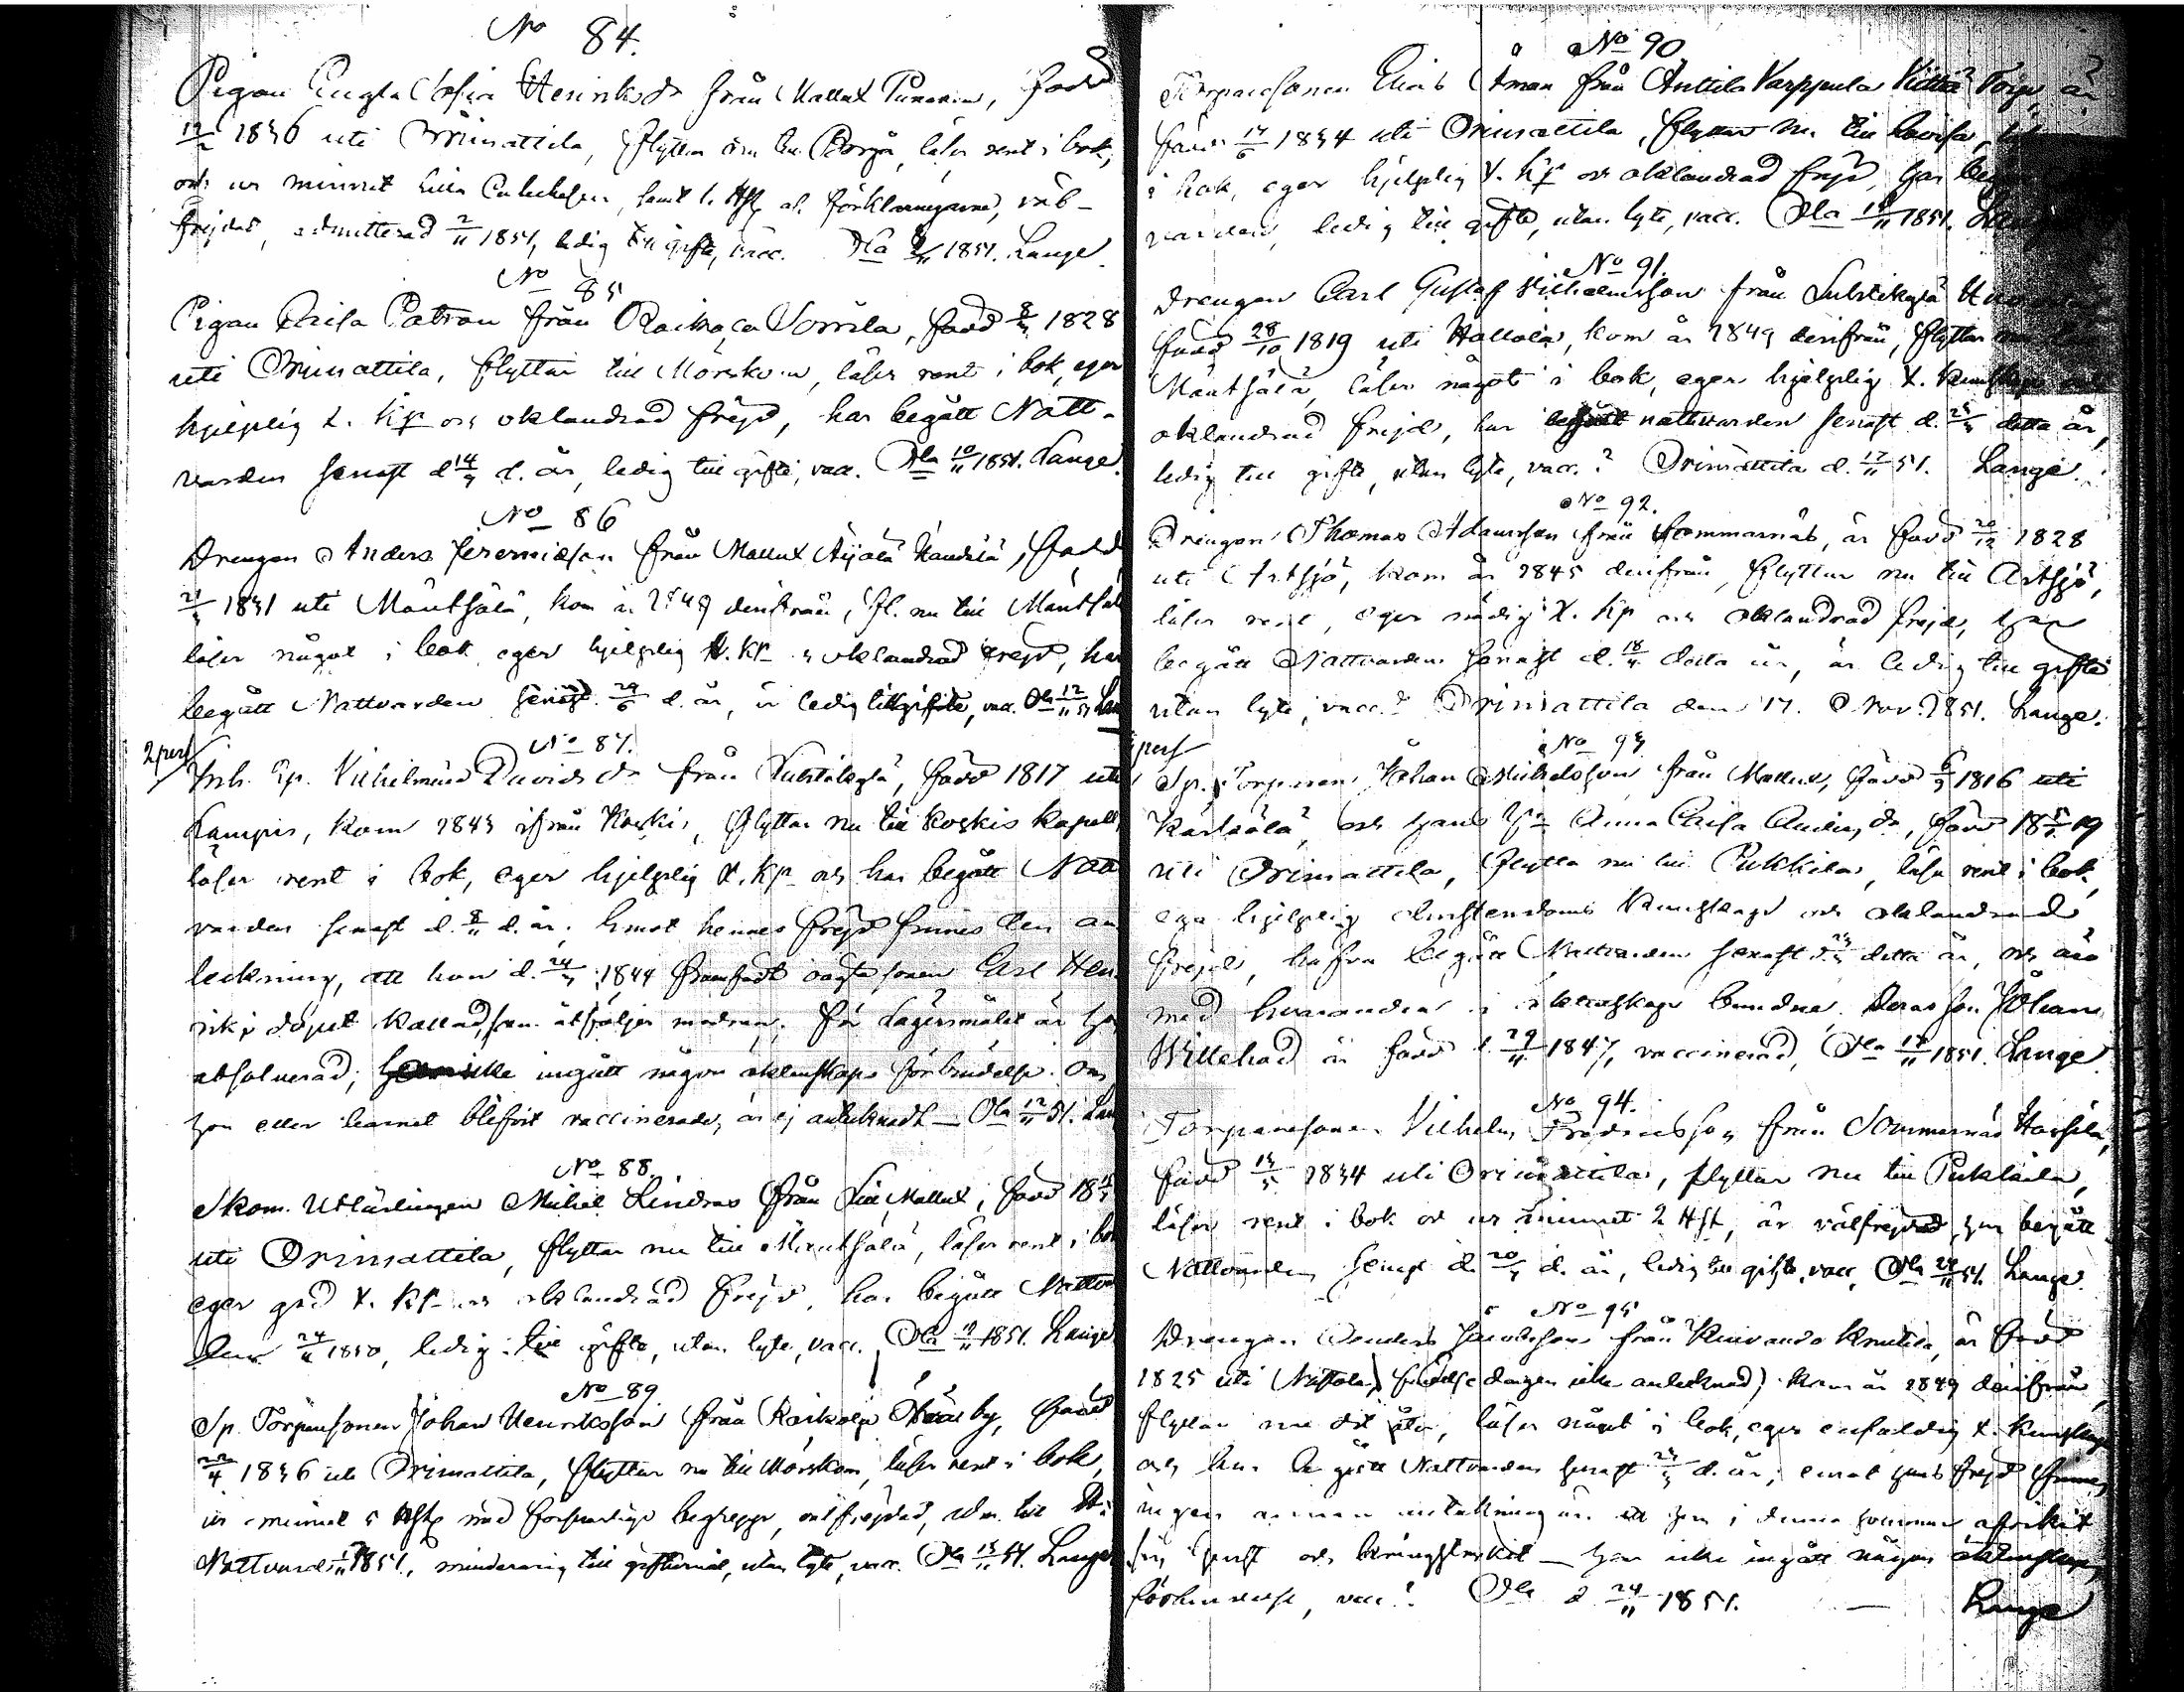 No 84.
Pigan Engla Sofia Henriksdr från Mallux Punavu, född
1836 uti Orimattila, flyttar nu till Borgå, läser rent i bok,
och ur minnet lilla Catechesen, samt 1. Hst af förklaringarne, väl-
frejdad, admitterad 2/11 1851, ledig till gifte, vacc. Ola 8/11 1851. Lange.
No 85
Pigan Caisa Patron från Raikola Sorrila, född 1828
uti Orimattila, flyttar till Mörskom, läser rent i bok, eger
hjelplig X. Kp och oklandrad frejd, har begått Natt-
varden senast d 14 d. år, ledig till gifte, vacc. Ola 10/11 1851. Lange.
No 86
Drengen Anders Jeremiasson från Mallux Äijälä, född
1831 uti Mäntsälä, kom år 1849 derifrån, fl. nu till Mäntsälä
läser något i bok, eger hjelplig X. Kp. oklandrad frejd, har
begått Nattvarden senast 29/6 d. år, är ledig till gifte, vacc. Ola 12/11 51 Lan
No 87.
2 pers
Inh. Ep. Vilhelmina Davidsdr från Luhtikylä, född 1817 uti
Lampis, kom 1843 ifrån Koskis, flyttar nu till Koskis kapell,
läser rent i bok, eger hjelplig X. Kp och har begått Natt
varden senast d. 8/11 d. år; emot hennes frejd finnes den an
teckning, att hon d. 24 1844 framfödt oägta sonen Carl Hen
rik i dopet kallad, som åtföljer modren. För lägersmålet är hon
absolverad; har icke ingått någon äktenskaps förbindelse. Om
hon eller barnet blifvit vaccinerade, är ej antecknadt – Ola 12/11 51. Lan
No 88.
Skom. Utlärlingen Michel Lindroos från Mallux, född 18
uti Orimattila, flyttar nu till Mäntsälä, läser rent i bok
eger god X. Kp och oklandrad frejd, har begått Nattvar
den 24 1850, ledig till gifte, utan lyte, vacc. Ola 1851. Lange
No 89
Sp. Torparesonen Johan Henriksson från Raikola by, född
22/4 1836 uti Orimattila, flyttar nu till Mörskom, läser rent i bok,
ur minnet 5 Hst med försvarligt begrepp, välfrejdad, adm. till H.
Nattvard 1851, minderårig till giftermål, utan lyte, vacc. Ola 13/11 51. Lange
No 90
Torparesonen Elias Åman från Anttila Varppula Kittä Torp, är
född 17/6 1834 uti Orimattila, flyttar nu till Lovisa,
i bok, eger hjelplig X. Kp och oklandrad frejd, har
varden, ledig till gifte, utan lyte, vacc. Ola 1851.
No 91.
Drengen Carl Gustaf Vilhelmsson från Luhtikylä
född 28/10 1819 uti Hollola, kom år 1849 derifrån, flyttar
Mäntsälä, läser något i bok, eger hjelplig X. Kunskap och
oklandrad frejd, har begått nattvarden senast d. detta år,
ledig till gifte, utan lyte, vacc.? Orimattila d. 17/11 51. Lange.
No 92.
Drengen Thomas Adamsson från Sommarnäs, är född 20/12 1828
uti Artsjö, kom år 1845 derifrån, flyttar nu till Artsjö,
läser rent, eger nödig X. Kp och oklandrad frejd, har
begått Nattvarden senast d. 18 detta år, är ledig till gifte
utan lyte, vacc.? Orimattila den 17. Nov. 1851. Lange.
No 93
pers
Sp. Torparen Johan Michelsson från Mallux, född 1816 uti
Kärkölä, och hans hu Anna Caisa Andersdr, född 18 19
uti Orimattila, flytta nu till Pukkila, läsa rent i bok,
ega hjelplig christendoms kunskap och oklandrad
frejd, hafva begått Nattvarden senast d. detta år, och äro
med hvarandra i äktenskap bundne. Deras son Johan
Willehad är född d. 29 1847, vaccinerad, Ola 17/11 1851. Lange.
No 94.
Torparesonen Vilhelm Fredriksson från Sommarnäs Hassila,
född 1834 uti Orimattila, flyttar nu till Pukkila,
läser rent i bok och ur minnet 2 Hst, är välfrejdad, har begått
Nattvarden senast d. 20 d. år, ledig till gifte, vacc, Ola 51. Lange.
No 95
Drengen Anders Jacobsson från Kuivando Knutila, är född
1825 uti (Nastola, födelse dagen icke antecknad) kom år 1849 derifrån,
flyttar nu dit åter, läser något i bok, eger enfaldig X. Kunskap
och har begått Nattvarden senast d. år; emot hans frejd finnes
ingen annan anteckning än att han i denna sommar afvikit
– har icke ingått någon äktenskaps
förbindelse, vacc.? Ola d 24/11 1851. — Lange